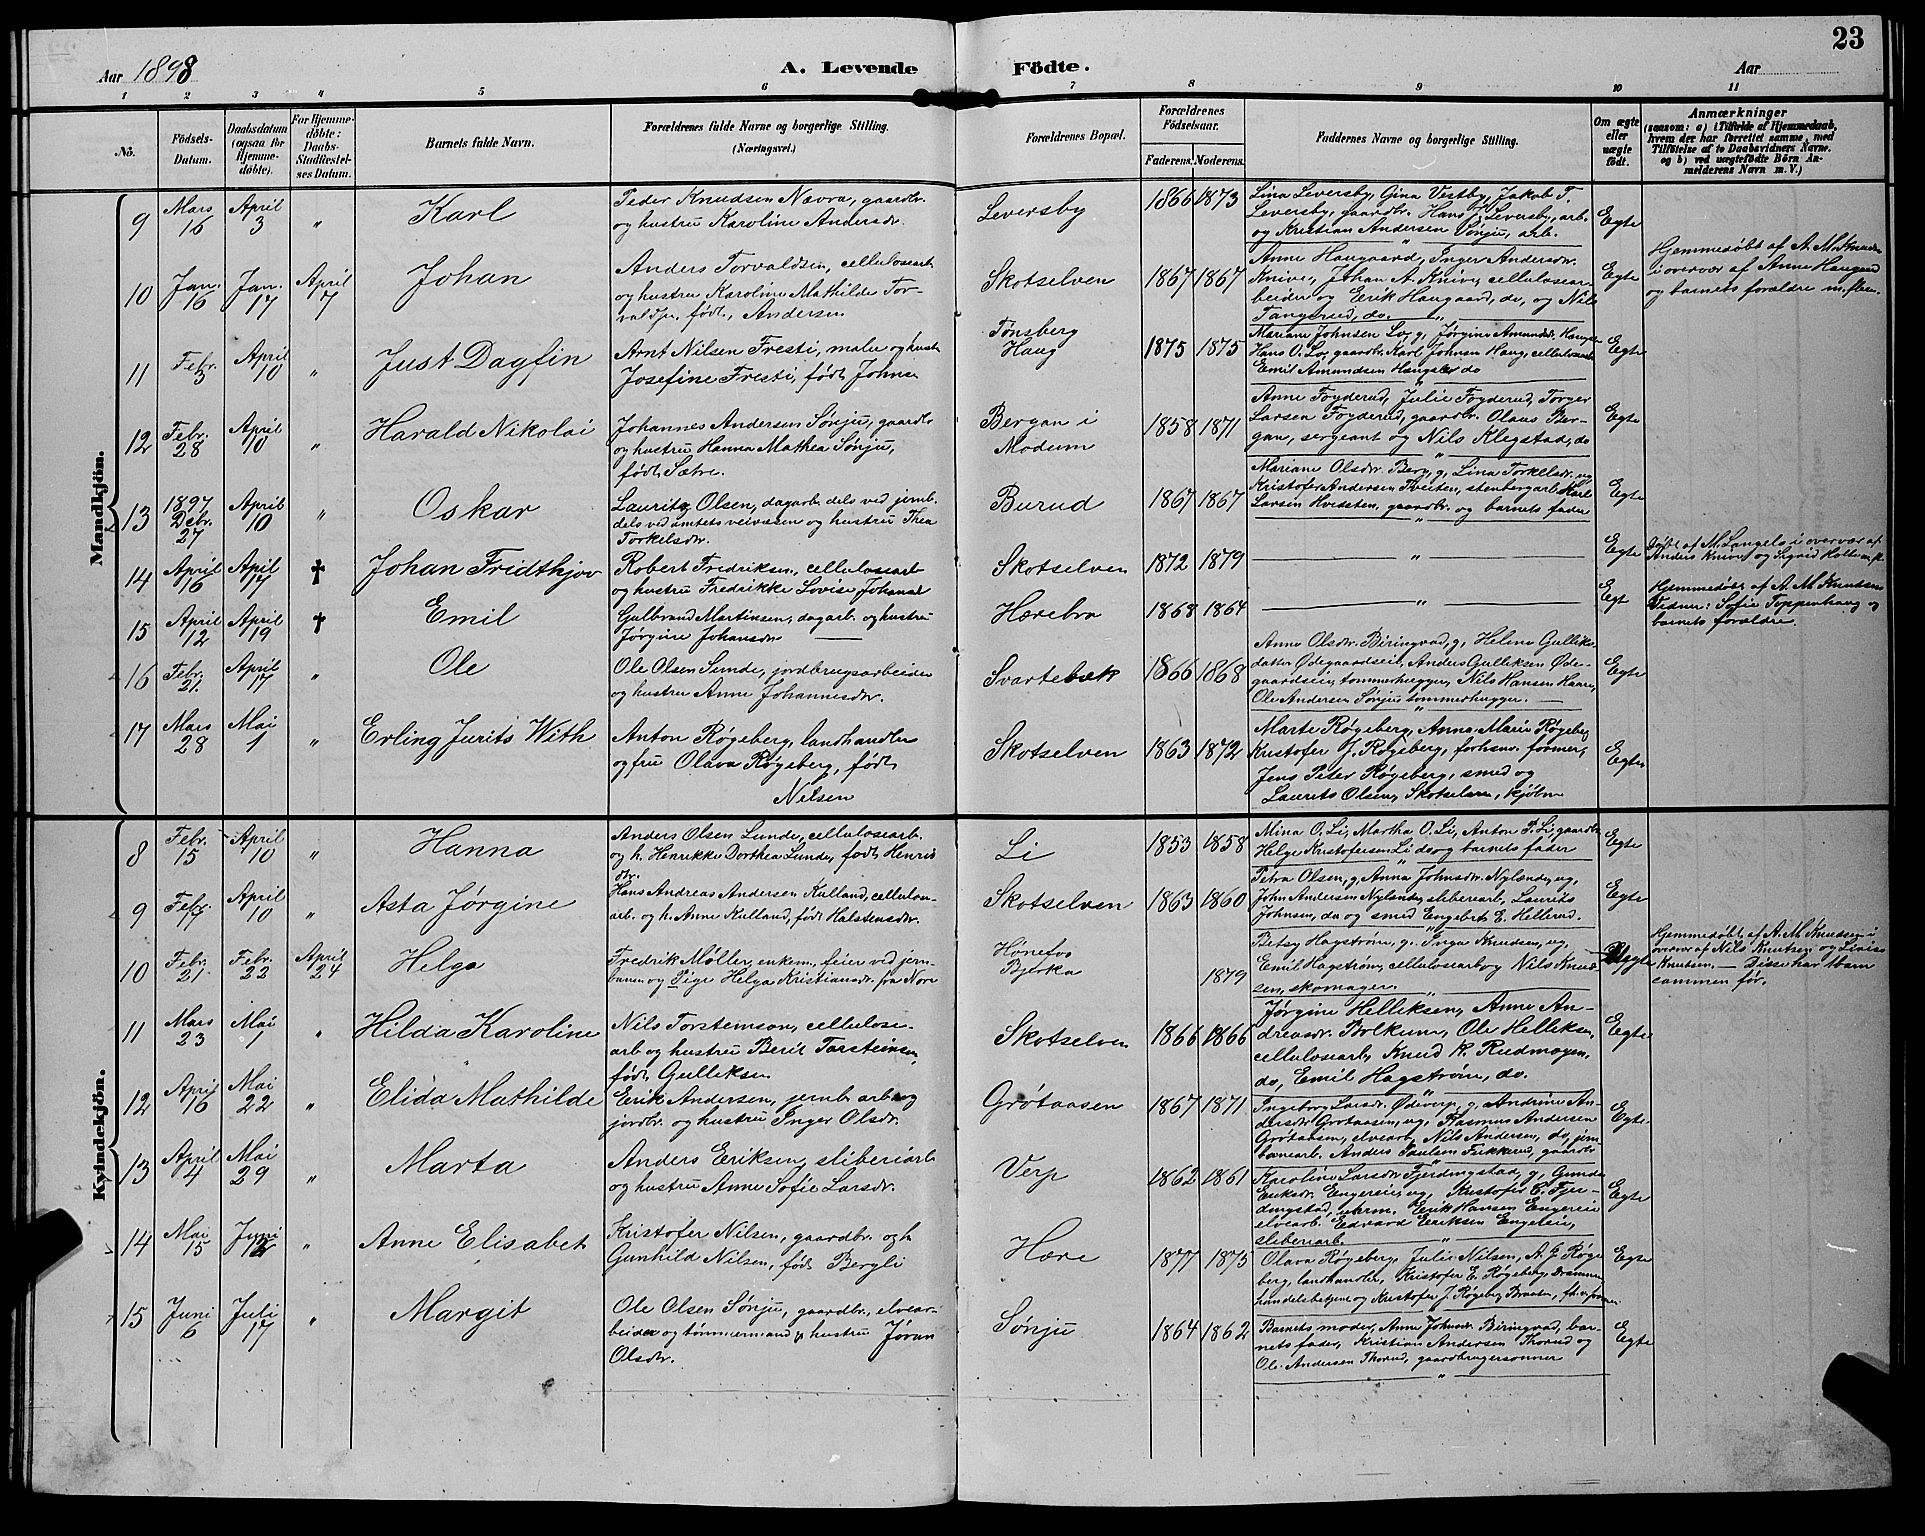 23
Aar 1898
A. Levende
Födte.
Aar
1 2 3 4 5 6 7 8 9 10 11
No.
Födsels-
Datum.
Daabsdatum
(ogsaa for
Hjemme-
döbte).
For Hjemme-
döbte:
Daabs-
Stadfæstel-
ses Datum.
Barnets fulde Navn.
Forældrenes fulde Navne og borgerlige Stilling.
(Næringsvei.)
Forældrenes Bopæl.
Forældrenes
Födselsaar.
Faderens. Moderens.
Faddernes Navne og borgerlige Stilling.
Om ægte
eller
uægte
födt.
Anmærkninger
(saasom: a) i Tilfælde af Hjemmedaab,
hvem der har forrettet samme, med
Tilföielse af to Daabsvidners Navne.
og b) ved uægtefödte Börn An-
melderens Navn m. V.)
Mandkjön.
9 Mars 16 April 3 " Karl
Peder Knudsen Nævra, gaardbr.
og hustru Karoline Andersdr.
Leversby 1866 1873
Lina Leversby, Gina Vestby, Jakob T.
Leversby, gaardbr. Hans Leversby, arb.
og Kristian Andersen Sønju, arb.
Egte
10 Jan. 16 Jan. 17 April 7 Johan
Anders Torvaldsen, cellulosearb.
og hustru Karoline Mathilde Tor-
valdsen, født Andersen
Skotselven 1867 1867
Anne Haugaard, Inger Andersdr.
Knive, Johan A. Knive, cellulosear-
beider og Erik Haugaard, do, og Nils
Tangerud, do.
Egte
Hjemmedøbt af A. M. Knudsen
i overvær af Anne Haugaard
og barnets forældre m. flere.
11 Febr. 3 April 10 " Just Dagfin
Arnt Nilsen Fresti, maler og hustr.
Josefine Fresti, født Johnsen
Tønsberg
Haug
1875 1875
Mariane Johnsen Lo, g, Jørgine Amundsdr.
Hans O. Lo, gaardbr. Karl Johnsen Haug, cellulosearb.
Emil Amundsen Haugslev do
Egte
12 Febr. 28 April 10 " Harald Nikolai
Johannes Andersen Sønju, gaardbr.
og hustru Hanna Mathea Sønju,
født Sætre.
Bergan i
Modum
1858 1871
Anne Foyderud, Julie Foyderud, Torger
Larsen Foyderud, gaardbr. Olaus Ber-
gan, sergeant og Nils Klegstad, do
Egte
13 1897 Debr. 27 April 10 " Oskar
Lauritz Olsen, dagarb. dels ved jernb.
dels ved amtets veivæsen og hustru Thea
Torkelsdr.
Burud 1867 1867
Mariane Olsdr. Berg, g, Lina Torkelsdr. ug
Kristofer Andersen Tveiten, stenbergarb. Karl
Larsen Hvidsten, gaardbr. og barnets fader
Egte
14 April 16 April 17 † Johan Fridthjov
Robert Fredriksen, cellulosearb
og hustru Fredrikke Lovise Johansdr
Skotselven 1872 1879 " Egte
Døbt af M. Langelo i overvær af
Anders Knive og Sigrid Holtem.
15 April 12 April 19 † Emil
Gulbrand Martinsen, dagarb. og hustru
Jørgine Johansdr
Hærebro 1868 1864 " Egt
Hjemmedøbt af A. M. Knudsen
Vidner: Sofie Toppenhaug og
barnets forældre.
16 Febr. 21. April 17 " Ole
Ole Olsen Lunde, jordbrugsarbeider
og hustru Anne Johannesdr.
Svartebæk 1866 1868
Anne Olsdr. Biringvad, g, Helene Gulliks-
datter Ødegaardseie, Anders Gulliksen Øde-
gaardseie, tømmerhugger, Nils Hansen Haare,
Ole Andersen Sønju tømmerhugger.
Egte
17 Mars 28 Mai 1 " Erling Jurits With
Anton Røgeberg, landhandler
og fru Olava Røgeberg, født
Nilsen
Skotselven 1863 1872
Marte Røgeberg, Anna Marie Røgeberg
Kristofer J. Røgeberg, forhenv. former,
Jens Peter Røgeberg, smed og
Laurits Olsen, Skotselven, kjøbm
Egte
Kvindekjön.
8 Febr. 15 April 10 " Hanna
Anders Olsen Lunde, cellulosearb.
og h. Henrikke Dorthea Lunde, født Henriks
dr.
Li 1853 1858
Mina O. Li, Martha O. Li, Anton P. Li, gaardbr.
Helge Kristofersen Li do og barnets fader
Egte
9 Febr. 17 April 10 " Asta Jørgine
Hans Andreas Andersen Kulland, cellulose-
arb. og h. Anne Kulland, født Halstensdr.
Skotselven 1863 1860
Petra Olsen, g, Anna Johnsdr. Nylende, ug,
John Andersen Nylende, sliberiarb, Laurits
Johnsen, do og smed Engebret E. Hellerud.
Egte
10 Febr. 21 Febr. 22 April 24 Helga
Fredrik Møller, enkem., feier ved jern-
banen og Pige Helga Kristiansdr. fra Nore
Hønefos
Bjerka
1879
Betsy Hagstrøm, g. Inga Knudsen, ug,
Emil Hagstrøm, cellulosearb og Nils Knud-
sen, skomager.
Uegte
Hjemmedøbt af A. M. Knudsen i
overvær af Nils Knutsen og Lovise
Knutsen. — Disse har 1 barn
sammen før.
11 Mars 23 Mai 1 " Hilda Karoline
Nils Torsteinson, cellulose-
arb og hustru Berit Torsteinsen,
født Gulliksen
Skotselven 1866 1866
Jørgine Helliksen, Anne An-
dreasdr. Bolkum, Ole Helliksen,
cellulosearb, Knud K. Rudmoyen,
do, Emil Hagstrøm, do.
Egte
12 April 16 Mai 22 " Elida Mathilde
Erik Andersen, jernb. arb og
jordbr. og hustru Inger Olsdr.
Grøtaasen 1867 1871
Ingeborg Larsdr. Ødeverp, g, Andrine An-
dersdr Grøtaasen, ug, Rasmus Andersen
Grøtaasen, elvearb, Nils Andersen, do, jern-
banearb. Anders Paulsen Fukkerud, gaardbr
Egte
13 April 4 Mai 29 " Marta
Anders Eriksen, sliberiarb
og hustru Anne Sofie Larsdr.
Verp 1862 1861
Karoline Larsdr Fjerdingstad, g, Gunda
Eriksdr. Engereie, ug, Kristofer C. Fjer-
dingstad, Erik Hansen Engereie
elvearb. Edvard Eriksen Engeleie,
sliberiarb.
Egte
14 Mai 15 Juni 12 " Anne Elisabet
Kristofer Nilsen, gaardbr. og h
Gunhild Nilsen, født Bergli
Hære 1877 1875
Olava Røgeberg, Julie Nilsen, A. G Røge-
berg, landhandler, Kristofer E. Røgeberg, Drammen
handelsbetjent og Kristofer J. Røgeberg Braaten,
Egte
15 Juni 6 Juli 17 " Margit
Ole Olsen Sønju, gaardbr., elvear-
beider og tømmermand og hustru Jøran
Olsdtr.
Sønju 1864 1862
Barnets moder, Anne Johnsdr. Biringvad, bar-
nets fader, Kristian Andersen Thorud og
Ole Andersen Thorud, gaardbrugersønner
Egte